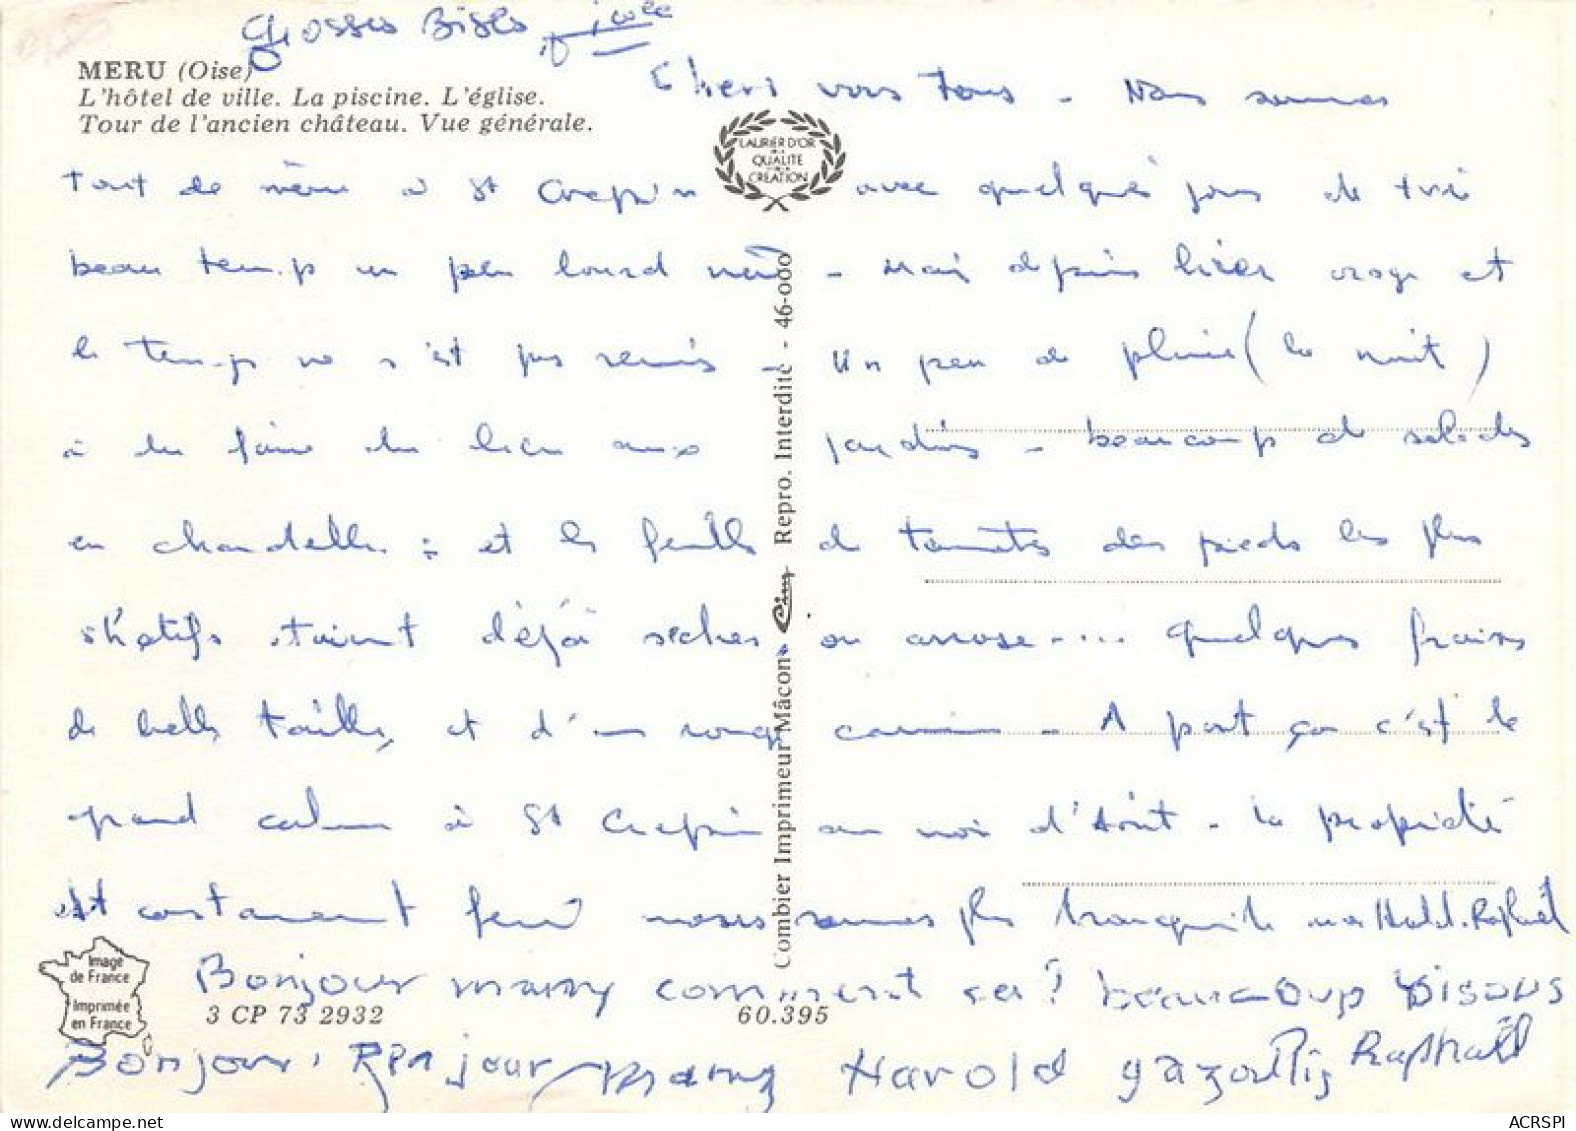 Grosses Bises
MERU (Oise)
L'hôtel de ville. La piscine. L'église.
Tour de l'ancien château. Vue générale.
LAURIER D'OR
DE LA
QUALITÉ
CRÉATION
Chers vous tous - Nous sommes
tout de même à St Crepin avec quelques jours de très
beau temps un peu lourd - Mais depuis hier orage et
le temps ne s'est pas remis - Un peu de pluie (la nuit)
à du faire du bien aux jardins - beaucoup de salades
en chandelle : et les feuilles de tomates des pieds les plus
étaient déjà sèches on arrose.... Quelques fraises
de belle taille, et d'un rouge carmin - A part ça c'est le
grand calme à St Crepin au moi d'Août - la propriété
est constament nous sommes plus tranquille Raphaël
Bonjour mamy comment sa? beaucoup bisous
Bonjour, jour mamy Harold Raphaël
Image
de France
Imprimée
en France
3 CP 73 2932
60.395
Combier Imprimeur Mâcon Cim Repro. Interdite - 46-000
ACRSPI